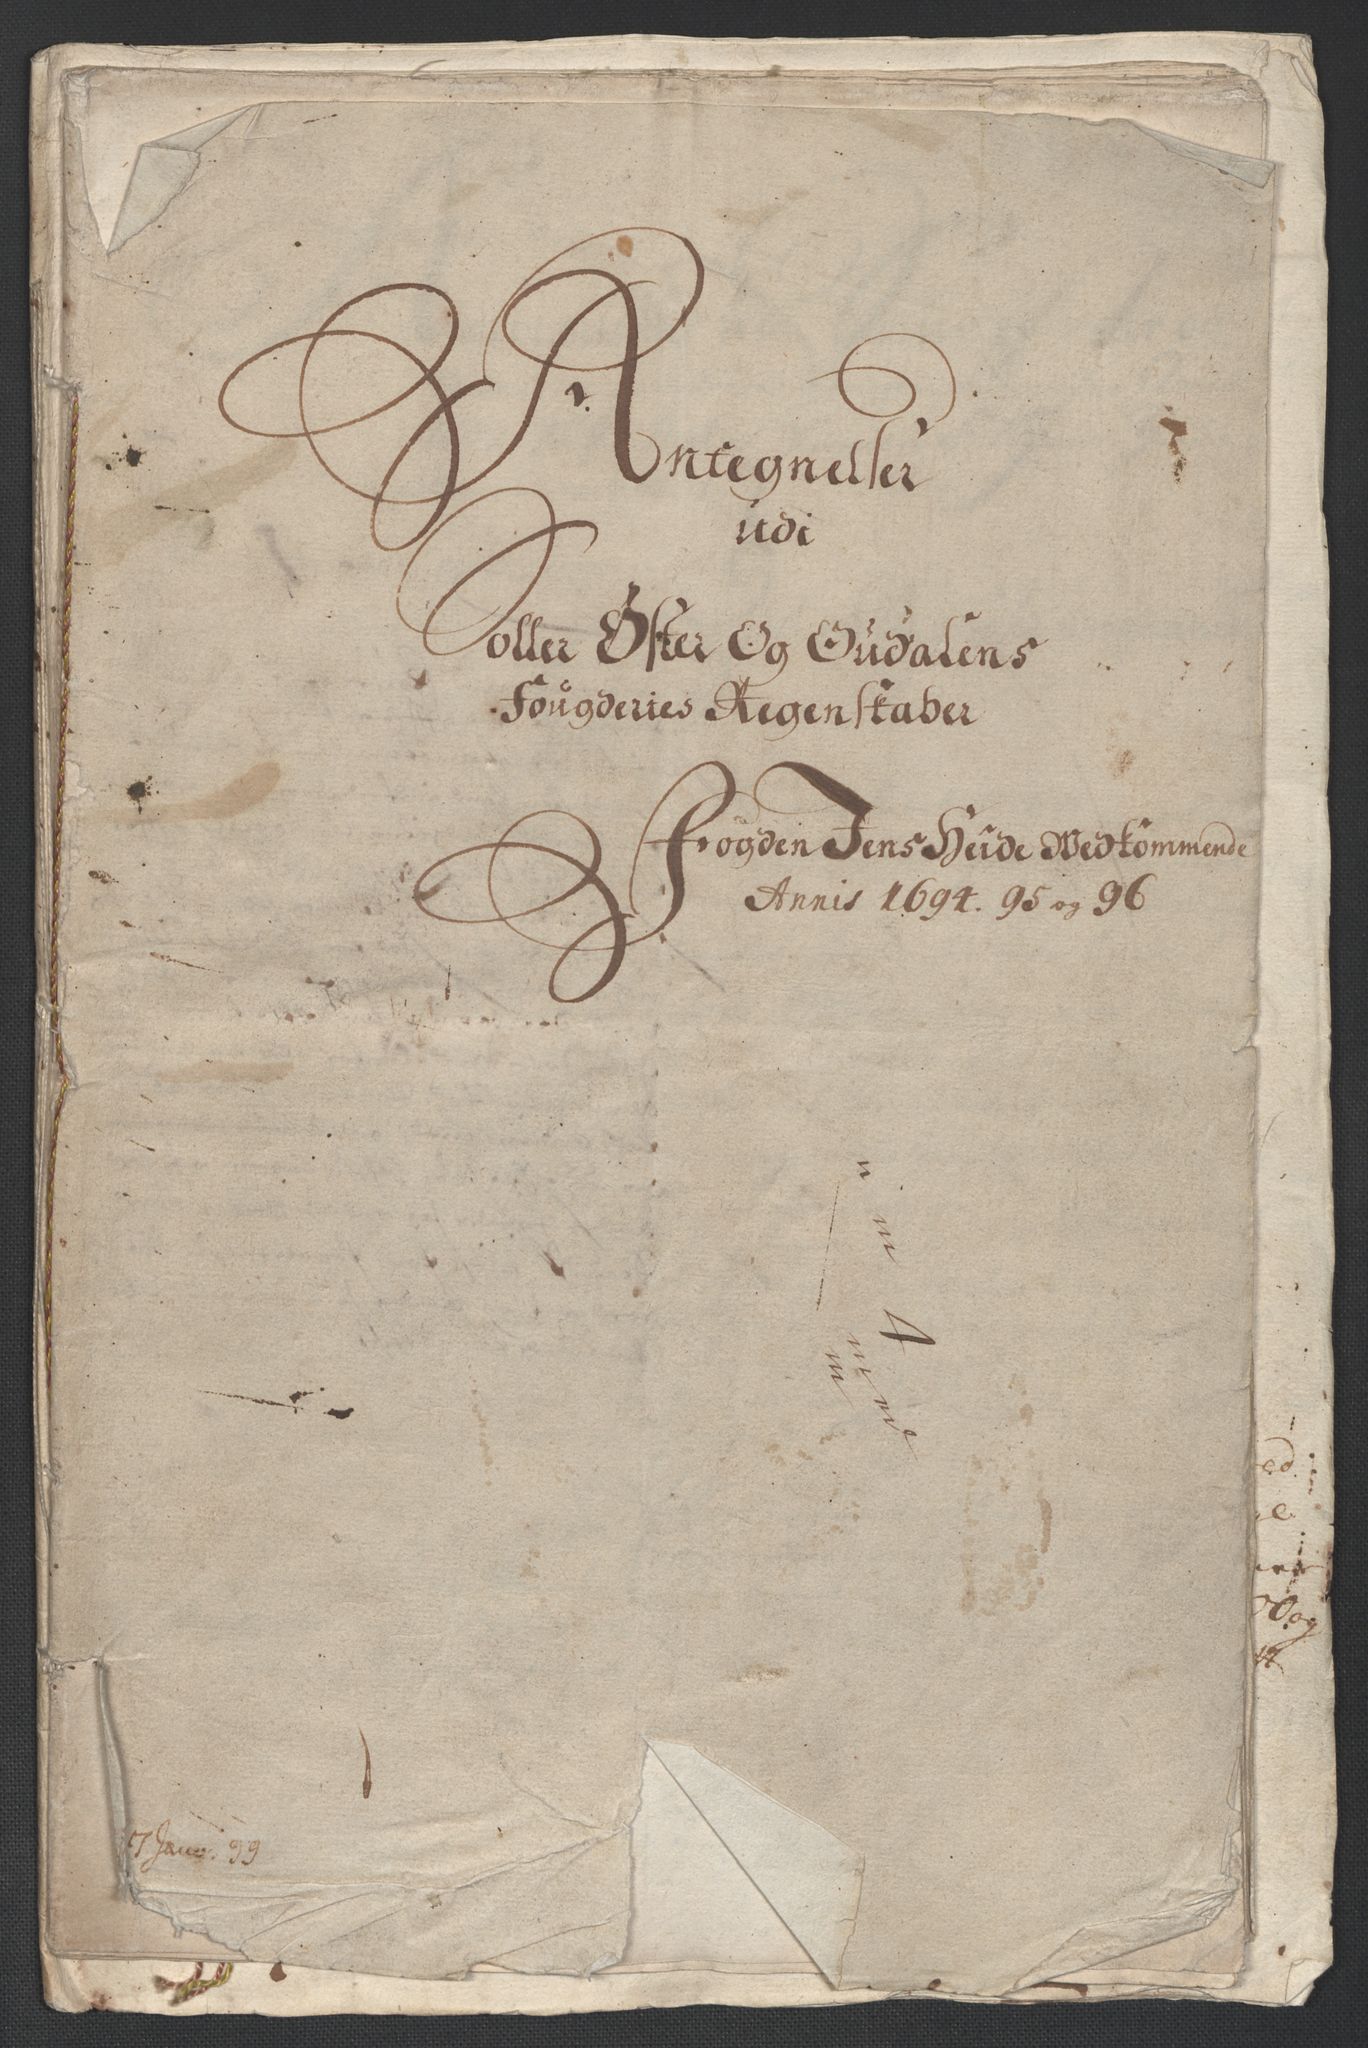 Antegnelser
udi
Soller Øster Og Oudalens
Fougderies Regenskaber
Fogden Jens Heide Vedkommende
Annis 1694. 95 og 96
4
7 Janv. 99
ed
OO. og